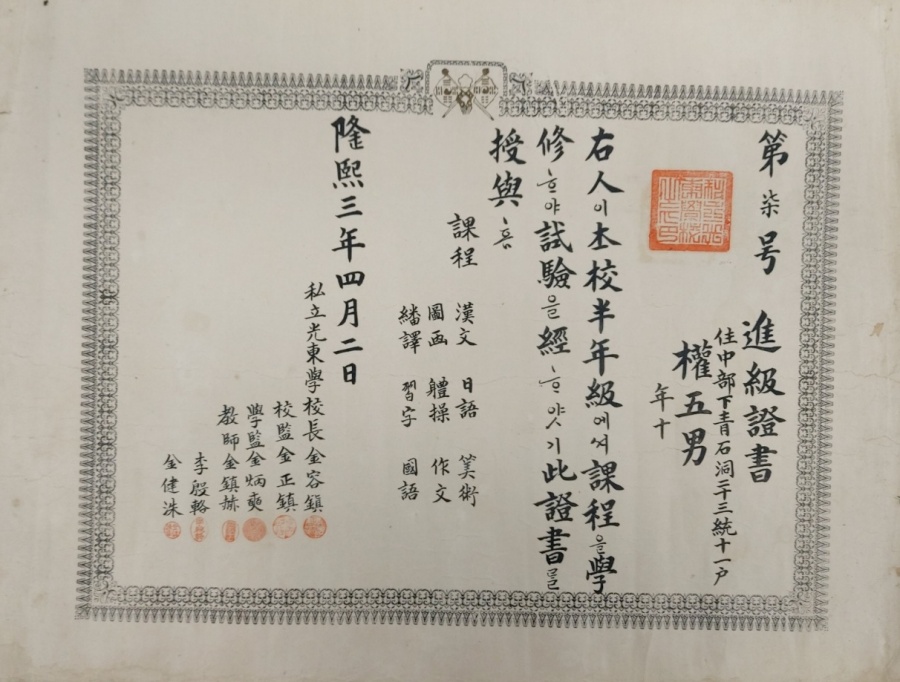 第柒号
進級證書
住中部下靑石洞二十三統十一戶
權五男
年十
右人이本校半年級에셔課程을學
修ᄒᆞ야試驗을經ᄒᆞ얏기此證書를
授與홈
課程
漢文 日語 筭術
圖画 體操 作文
繙譯 習字 國語
隆熙三年四月二日
私立光東學校長金容鎭
校監金正鎭
學監金炳奭
敎師金鎭赫
李殷輅
金健洙